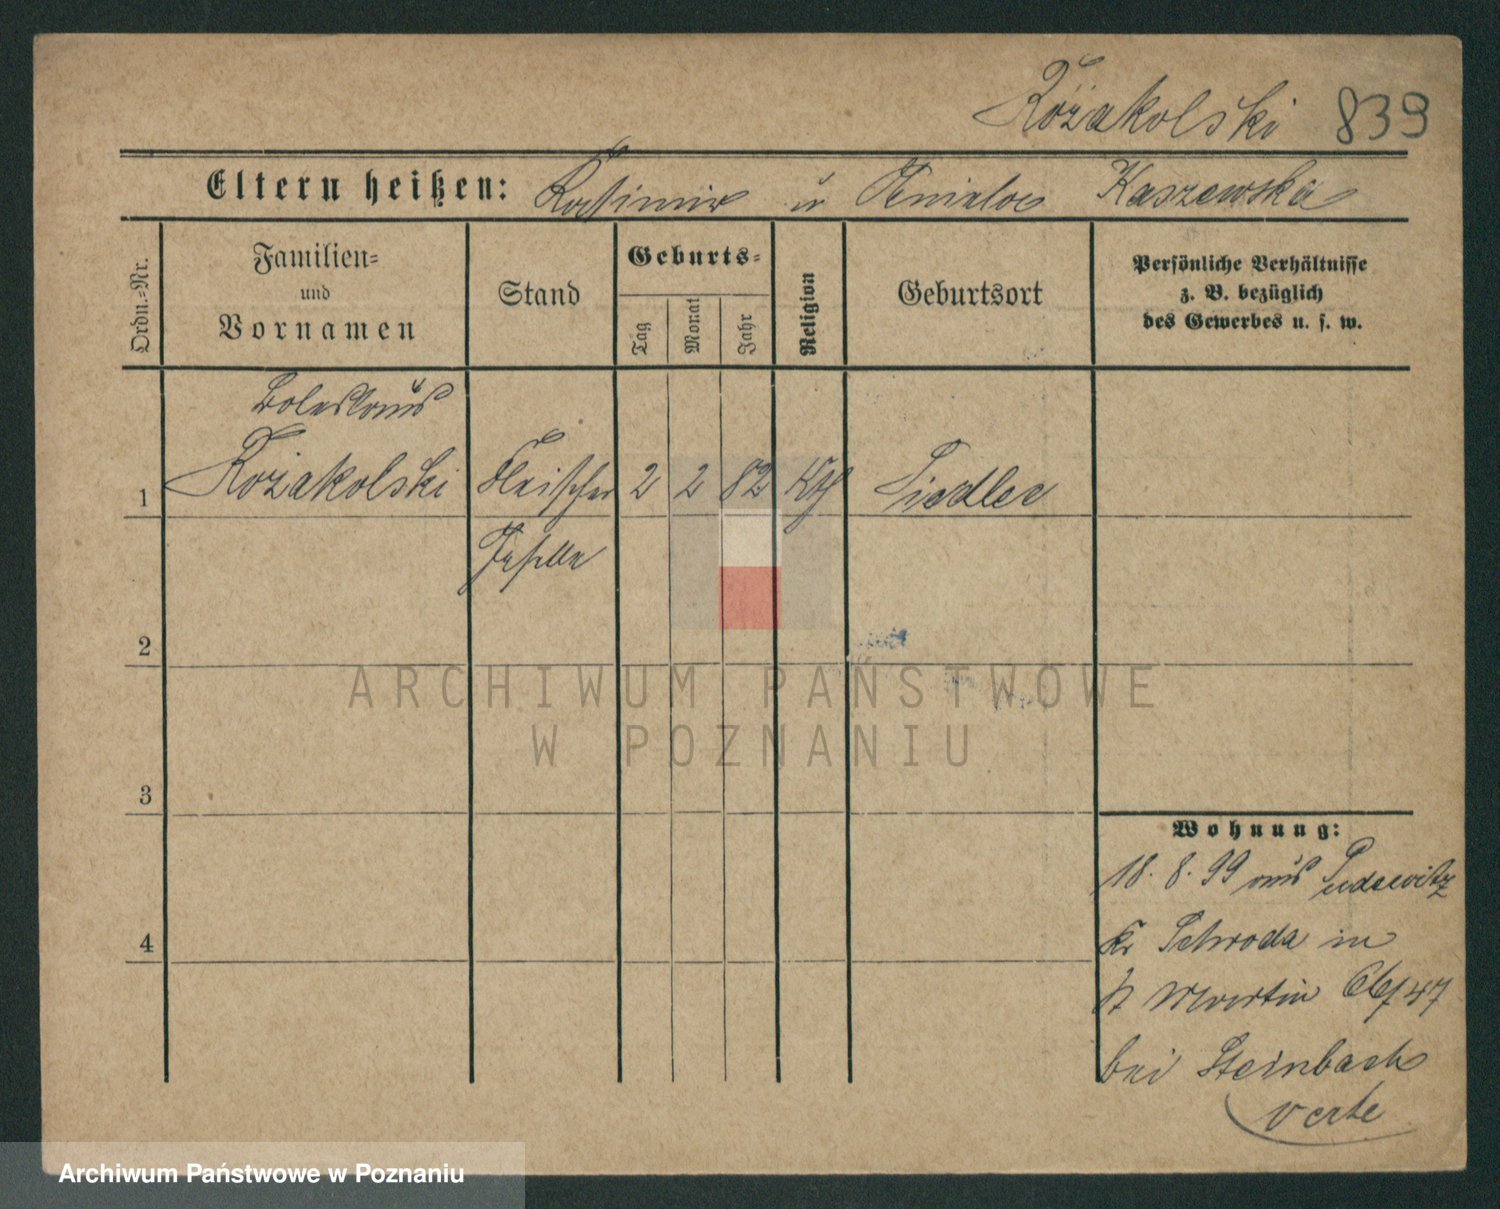 Kożakolski 839
Eltern heißen: Kasimir u Kaszewska
Ordn.-Nr.
Familien-
und
Vornamen
Stand
Geburts-
Tag
Monat
Jahr
Religion
Geburtsort
Persönliche Verhältnisse
z. B. bezüglich
des Gewerbes u. s. w.
Boleslaus
1 Kożakolski Fleischer 2 2 82 Kth Siedlec
Geselle
2
3
4
Wohnung:
18. 8. 99 aus Pudewitz
Kr Schroda in
St Martin 47
bei Steinbach
verte
ARCHIWUM PAŃSTWOWE
W POZNANIU
Archiwum Państwowe w Poznaniu